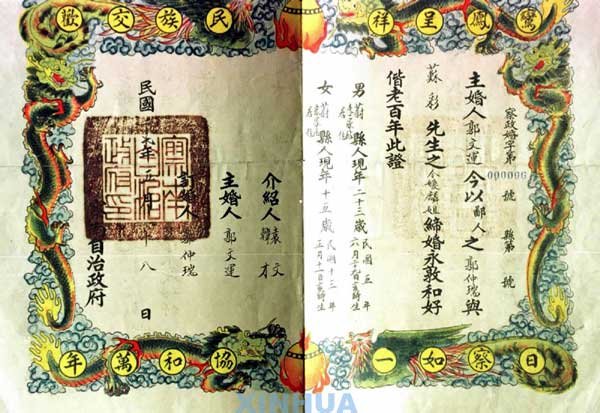 鸞鳳呈祥
民族交歡
察政婚字第 000096 號 縣第 號
主婚人郭文運今以鄙人之郭仲瑞與
蘇彩先生之令媛姐締婚永敦和好
偕老百年此證
男蔚縣人現年二十三歲民國五年六月二十時生
女蔚縣人現年十五歲民國十三年五月十一日時生
介紹人 袁文 韓才
主婚人 郭文運
仲瑞
民國年月十八日
自治政府
日察如一
協和萬年
XINHUA